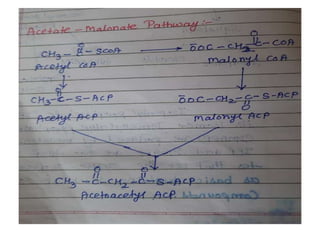 Acetate-Malonate Pathway:-
CH3-C(=O)-SCoA → ŌOC-CH2-C(=O)-COA
Acetyl CoA malonyl CoA
CH3-C(=O)-S-ACP ŌOC-CH2-C(=O)-S-ACP
Acetyl ACP Malonyl ACP
CH3-C(=O)-CH2-C(=O)-S-ACP
Acetoacetyl ACP